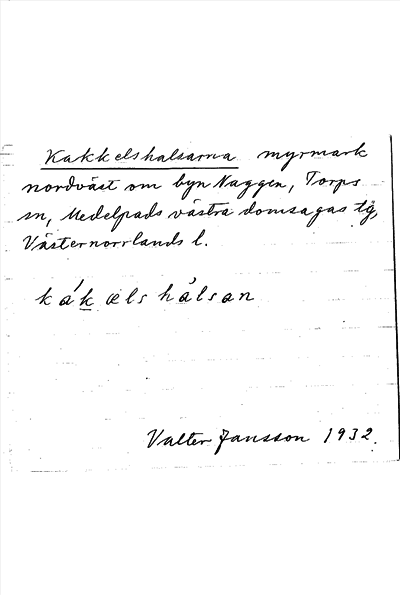 Kakkelshalsarna myrmark
nordväst om byn Naggen, Torps
sn, Medelpads västra domsagas tg,
Västernorrlands l.
kákælshálsan
Valter Jansson 1932.